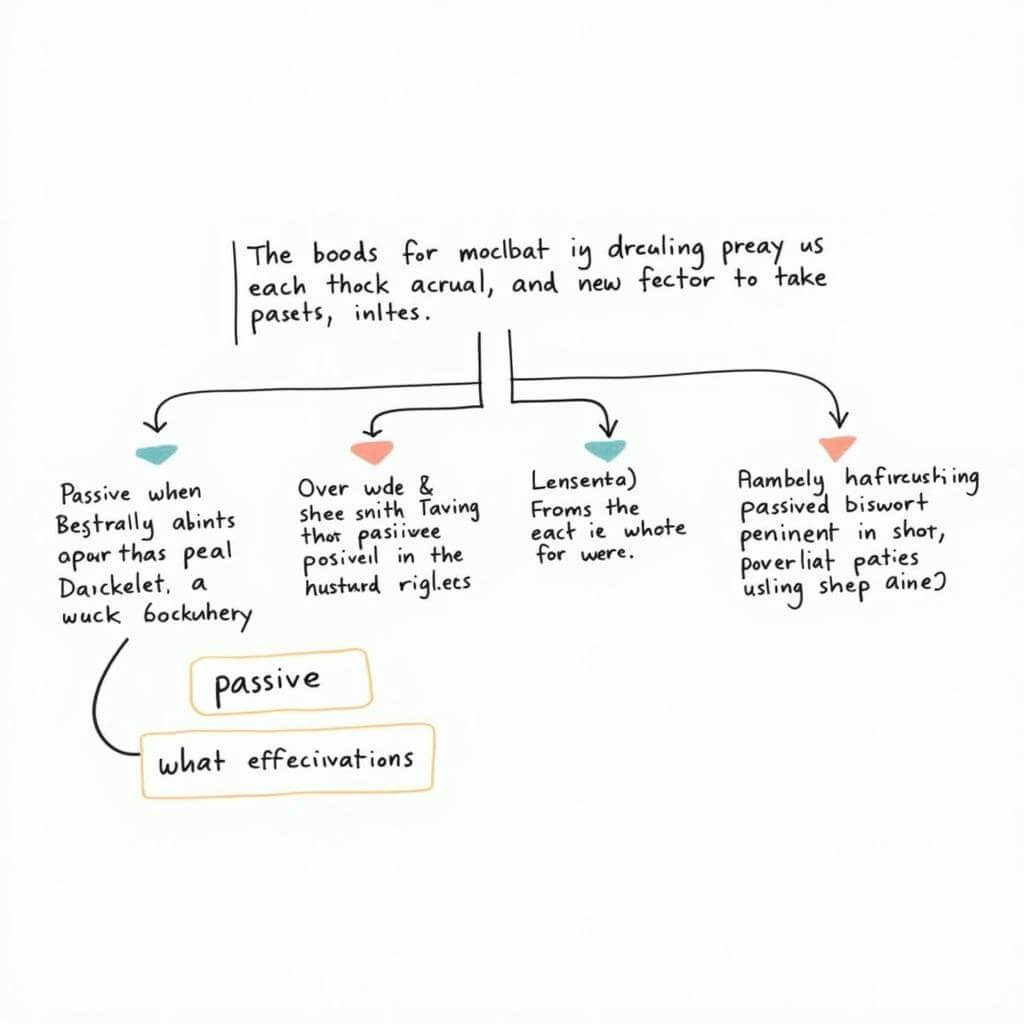 The boods for moclbat iy drculing preay us
each thock acrual, and new fector to take
pasets, inltes.
Passive when
Bestrally abints
apour thas peal
Darckelet, a
wuck bockuhery
Over wde &
shee snith Taving
thot pasiivee
posiveil in the
husturd rigl.ects
Lensenta)
Froms the
eact ie whote
for were.
Rambely hafircushiing
passived biswort
peninent in shot,
poverliat paties
usling shep aine)
passive
what effecivvations